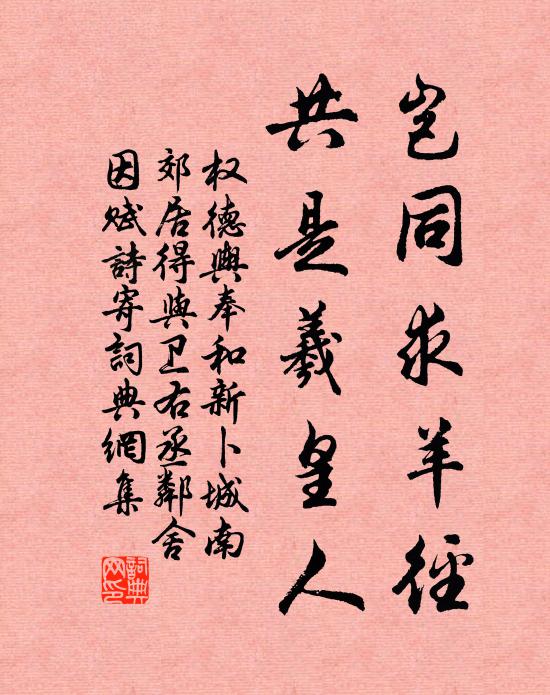 岂同求羊径
共是羲皇人
权德舆奉和新卜城南
郊居得与卫右丞鄰舍
因赋詩寄詞典網集
詞典
网印